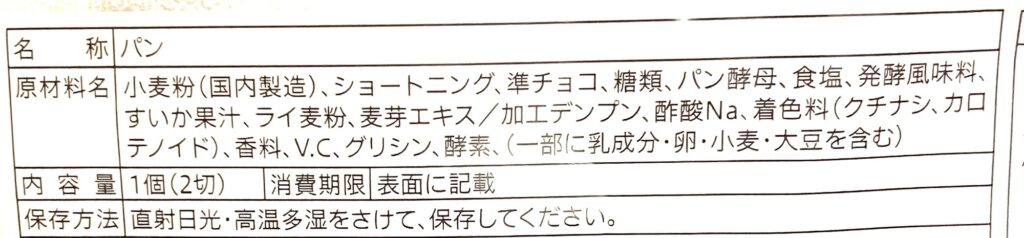 名称 パン
原材料名 小麦粉(国内製造)、ショートニング、準チョコ、糖類、パン酵母、食塩、発酵風味料、
すいか果汁、ライ麦粉、麦芽エキス/加工デンプン、酢酸Na、着色料(クチナシ、カロ
テノイド)、香料、V.C、グリシン、酵素、(一部に乳成分・卵・小麦・大豆を含む)
内容量 1個(2切) 消費期限 表面に記載
保存方法 直射日光・高温多湿をさけて、保存してください。